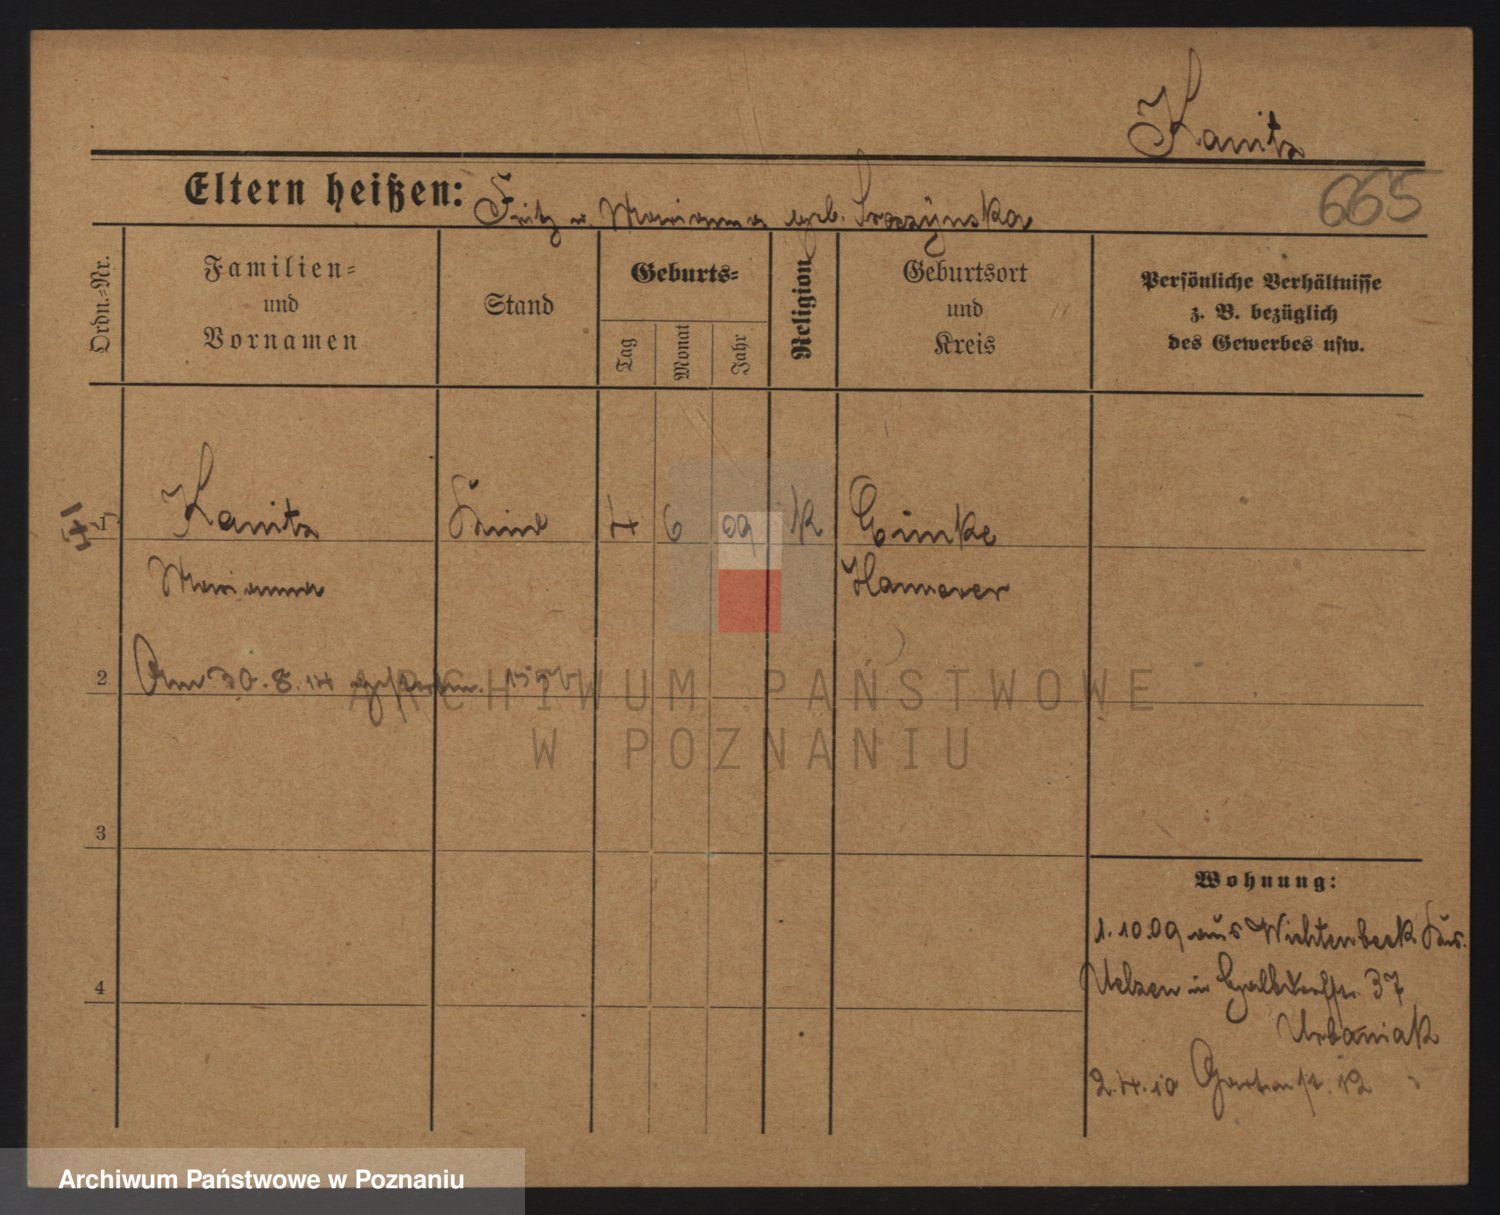 Kanitz
Eltern heißen: Fritz u. Marianna geb.
665
Ordn.-Nr.
Familien-
und
Vornamen
Stand
Geburts-
Tag
Monat
Jahr
Religion
Geburtsort
und
Kreis
Persönliche Verhältnisse
z. B. bezüglich
des Gewerbes usw.
1 Kanitz Kind 4 6 09 K Eimke
Marianna Hannover
2 Am 30.8.14 gestorben.
3
4
Wohnung:
1.10.09 aus Wichtenbeck Krs.
Uelzen in 37
Urbaniak
2.4.10 Gartenstr. 12
ARCHIWUM PAŃSTWOWE
W POZNANIU
Archiwum Państwowe w Poznaniu